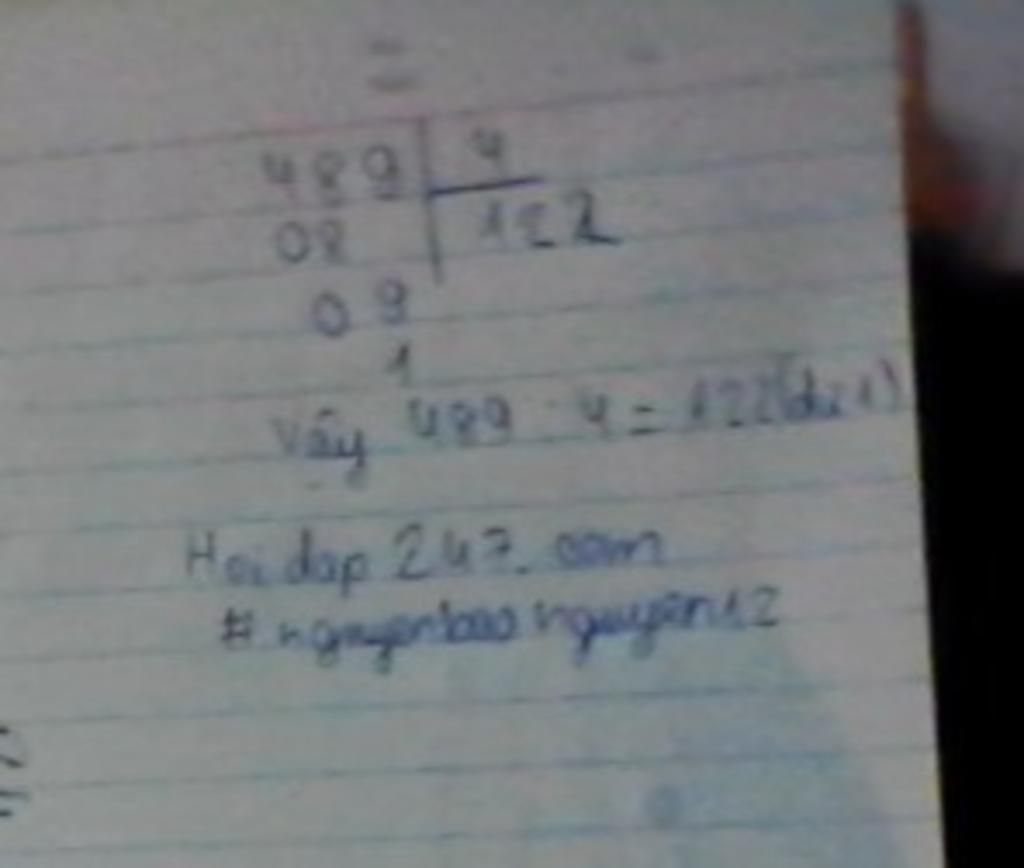 489 4
08 122
09
1
Vậy 489 : 4 = 122 (dư 1)
Hoidap247.com
# nguyenbaonguyen12